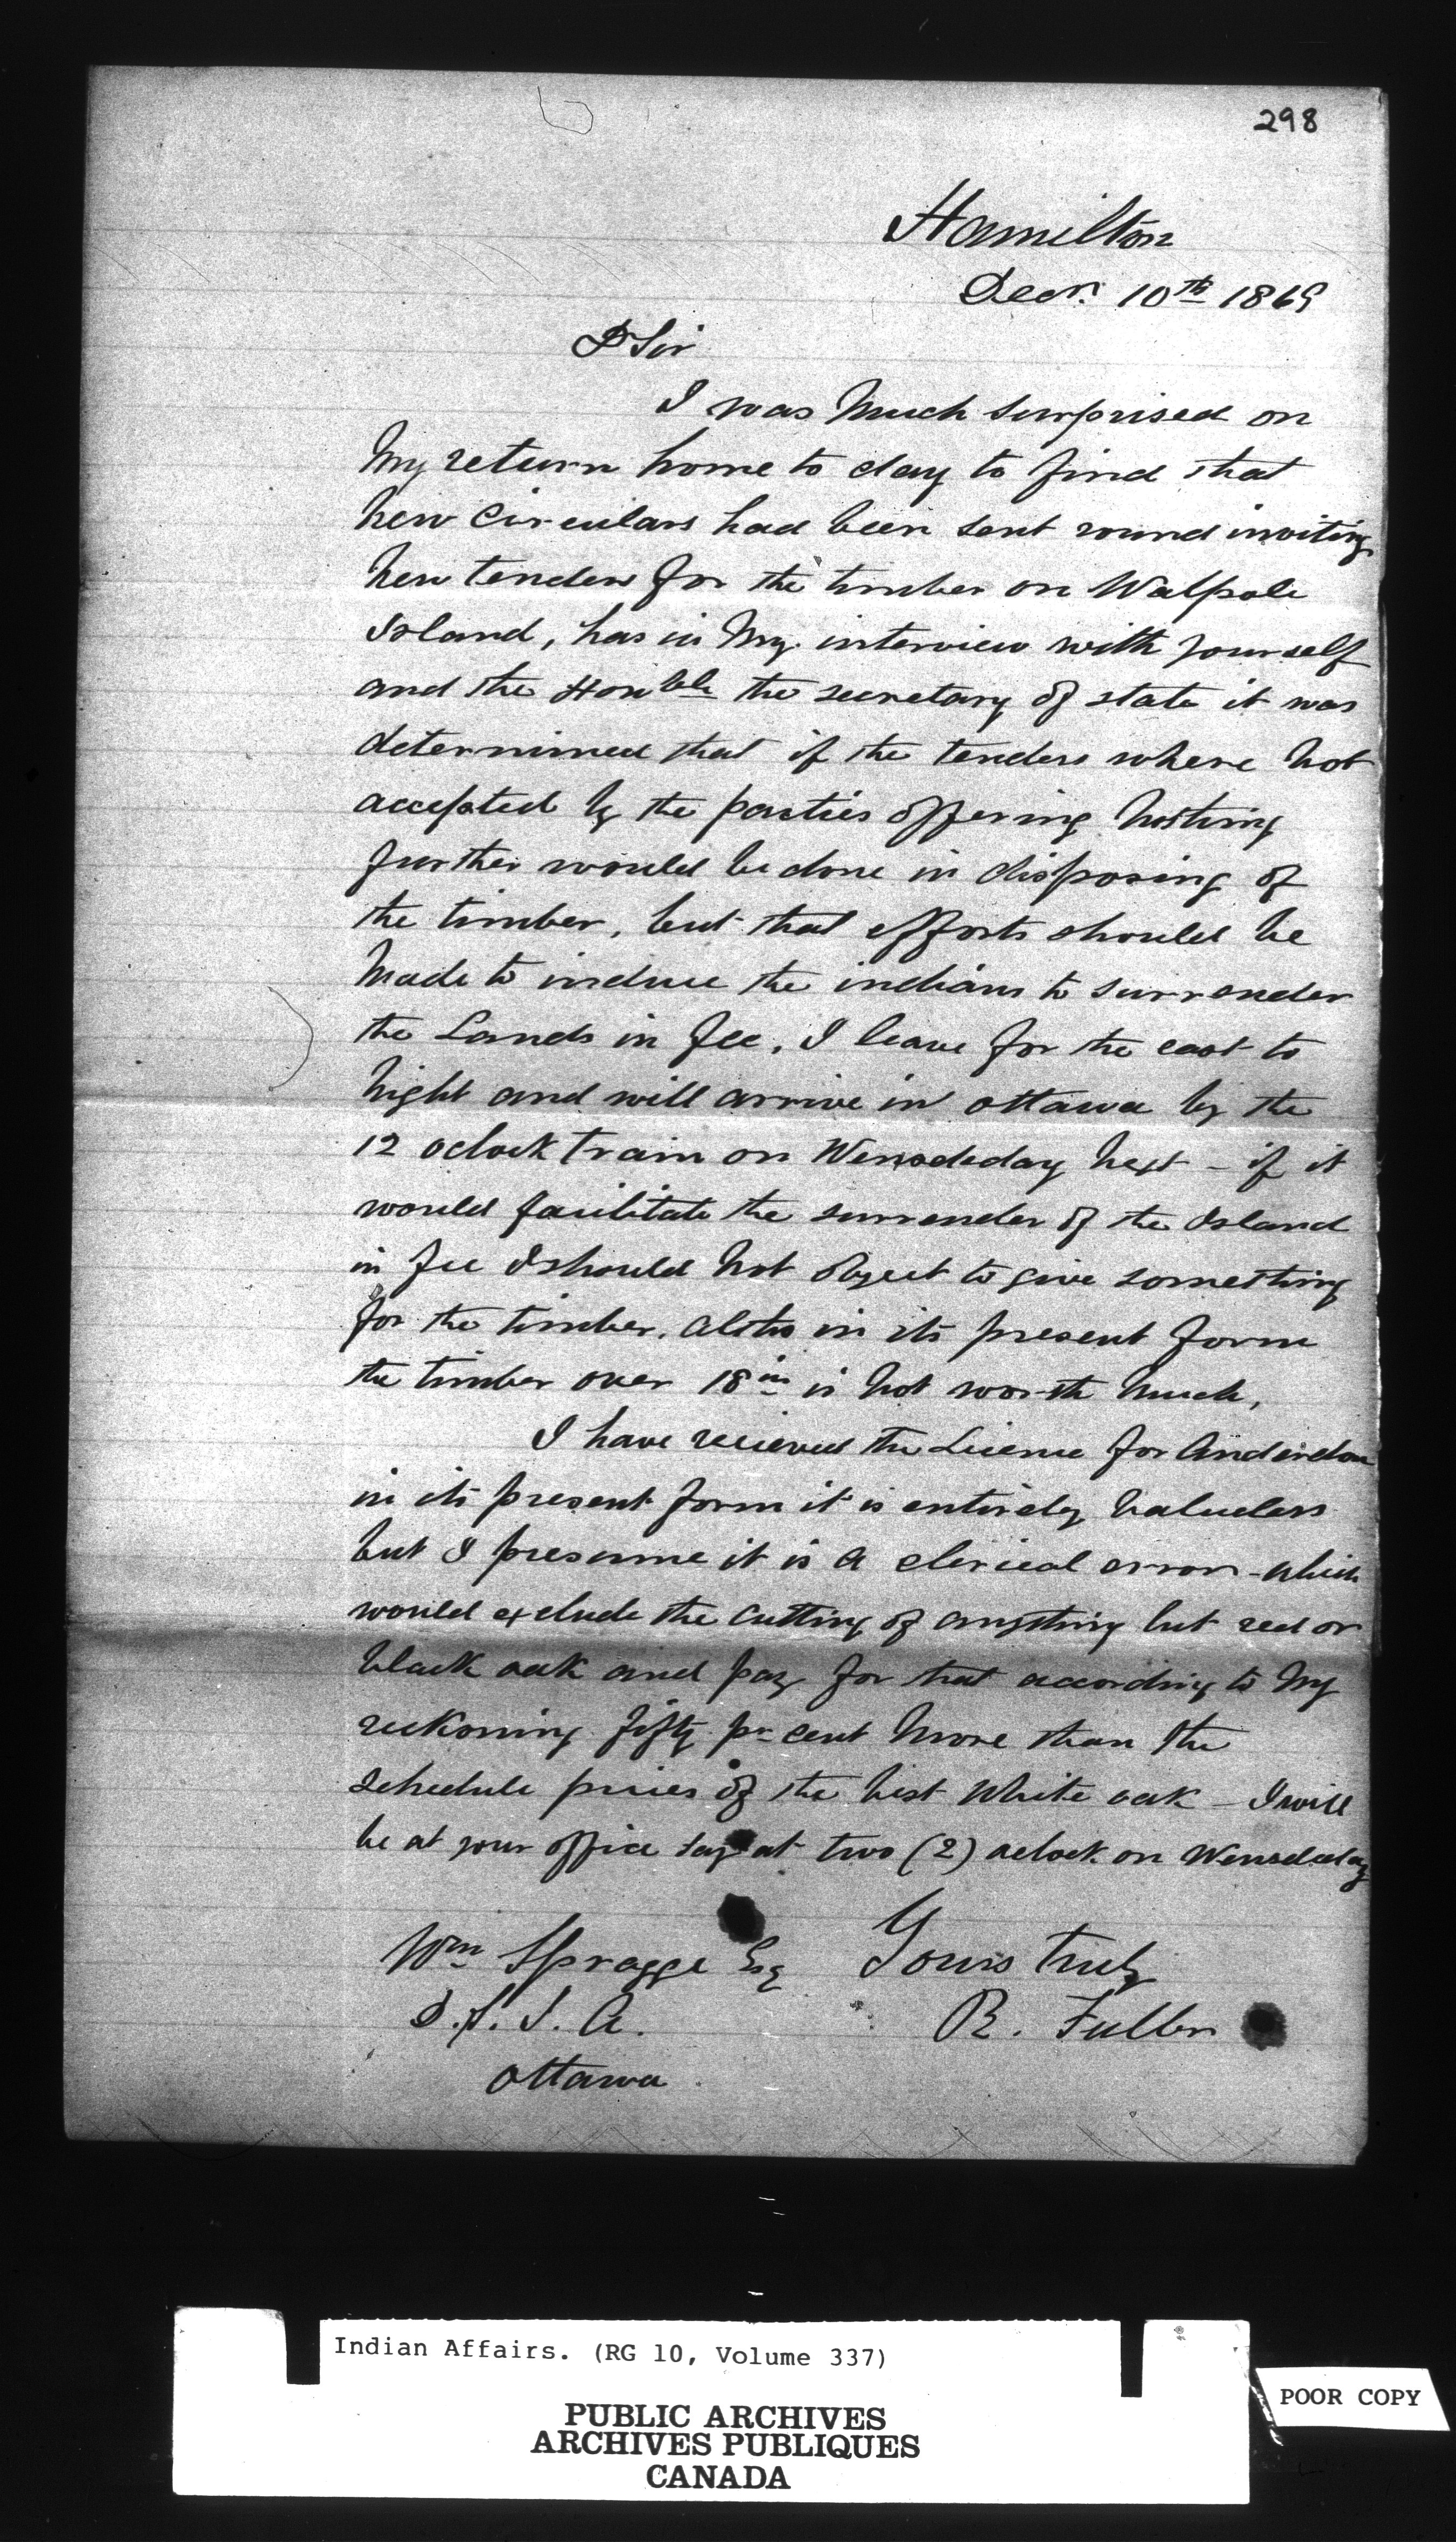 298
Hamilton
Decr. 10th 1869
Dr Sir
I was much surprised on
my return home to day to find that
new circulars had been sent round inviting
new tenders for the timber on Walpole
Island, has in my interview with yourself
and the Honble the secretary of state it was
determined that if the tenders where not
accepted by the parties offering nothing
further would be done in disposing of
the timber, but that efforts should be
made to induce the indians to surrender
the Lands in fee, I leave for the east to
night and will arrive in ottawa by the
12 oclock train on Wensdeday next - if it
would facilitate the surrender of the Island
in fee I should not object to give something
for the timber, altho in its present form
the timber over 18 in is not worth much,
I have recieved the Licence for Anderdon
in its present form it is entirely valueless
but I presume it is a clerical error - which
would exclude the cutting of anything but red or
black oak and pay for that according to my
reckoning fifty pr cent more than the
schedule prices of the best white oak - I will
be at your office say at two (2) oclock on Wensdeday
Wm Spragge Esq Yours truly
D.S.I.A. R. Fuller
ottawa
Indian Affairs. (RG 10, Volume 337)
PUBLIC ARCHIVES
ARCHIVES PUBLIQUES
CANADA
POOR COPY